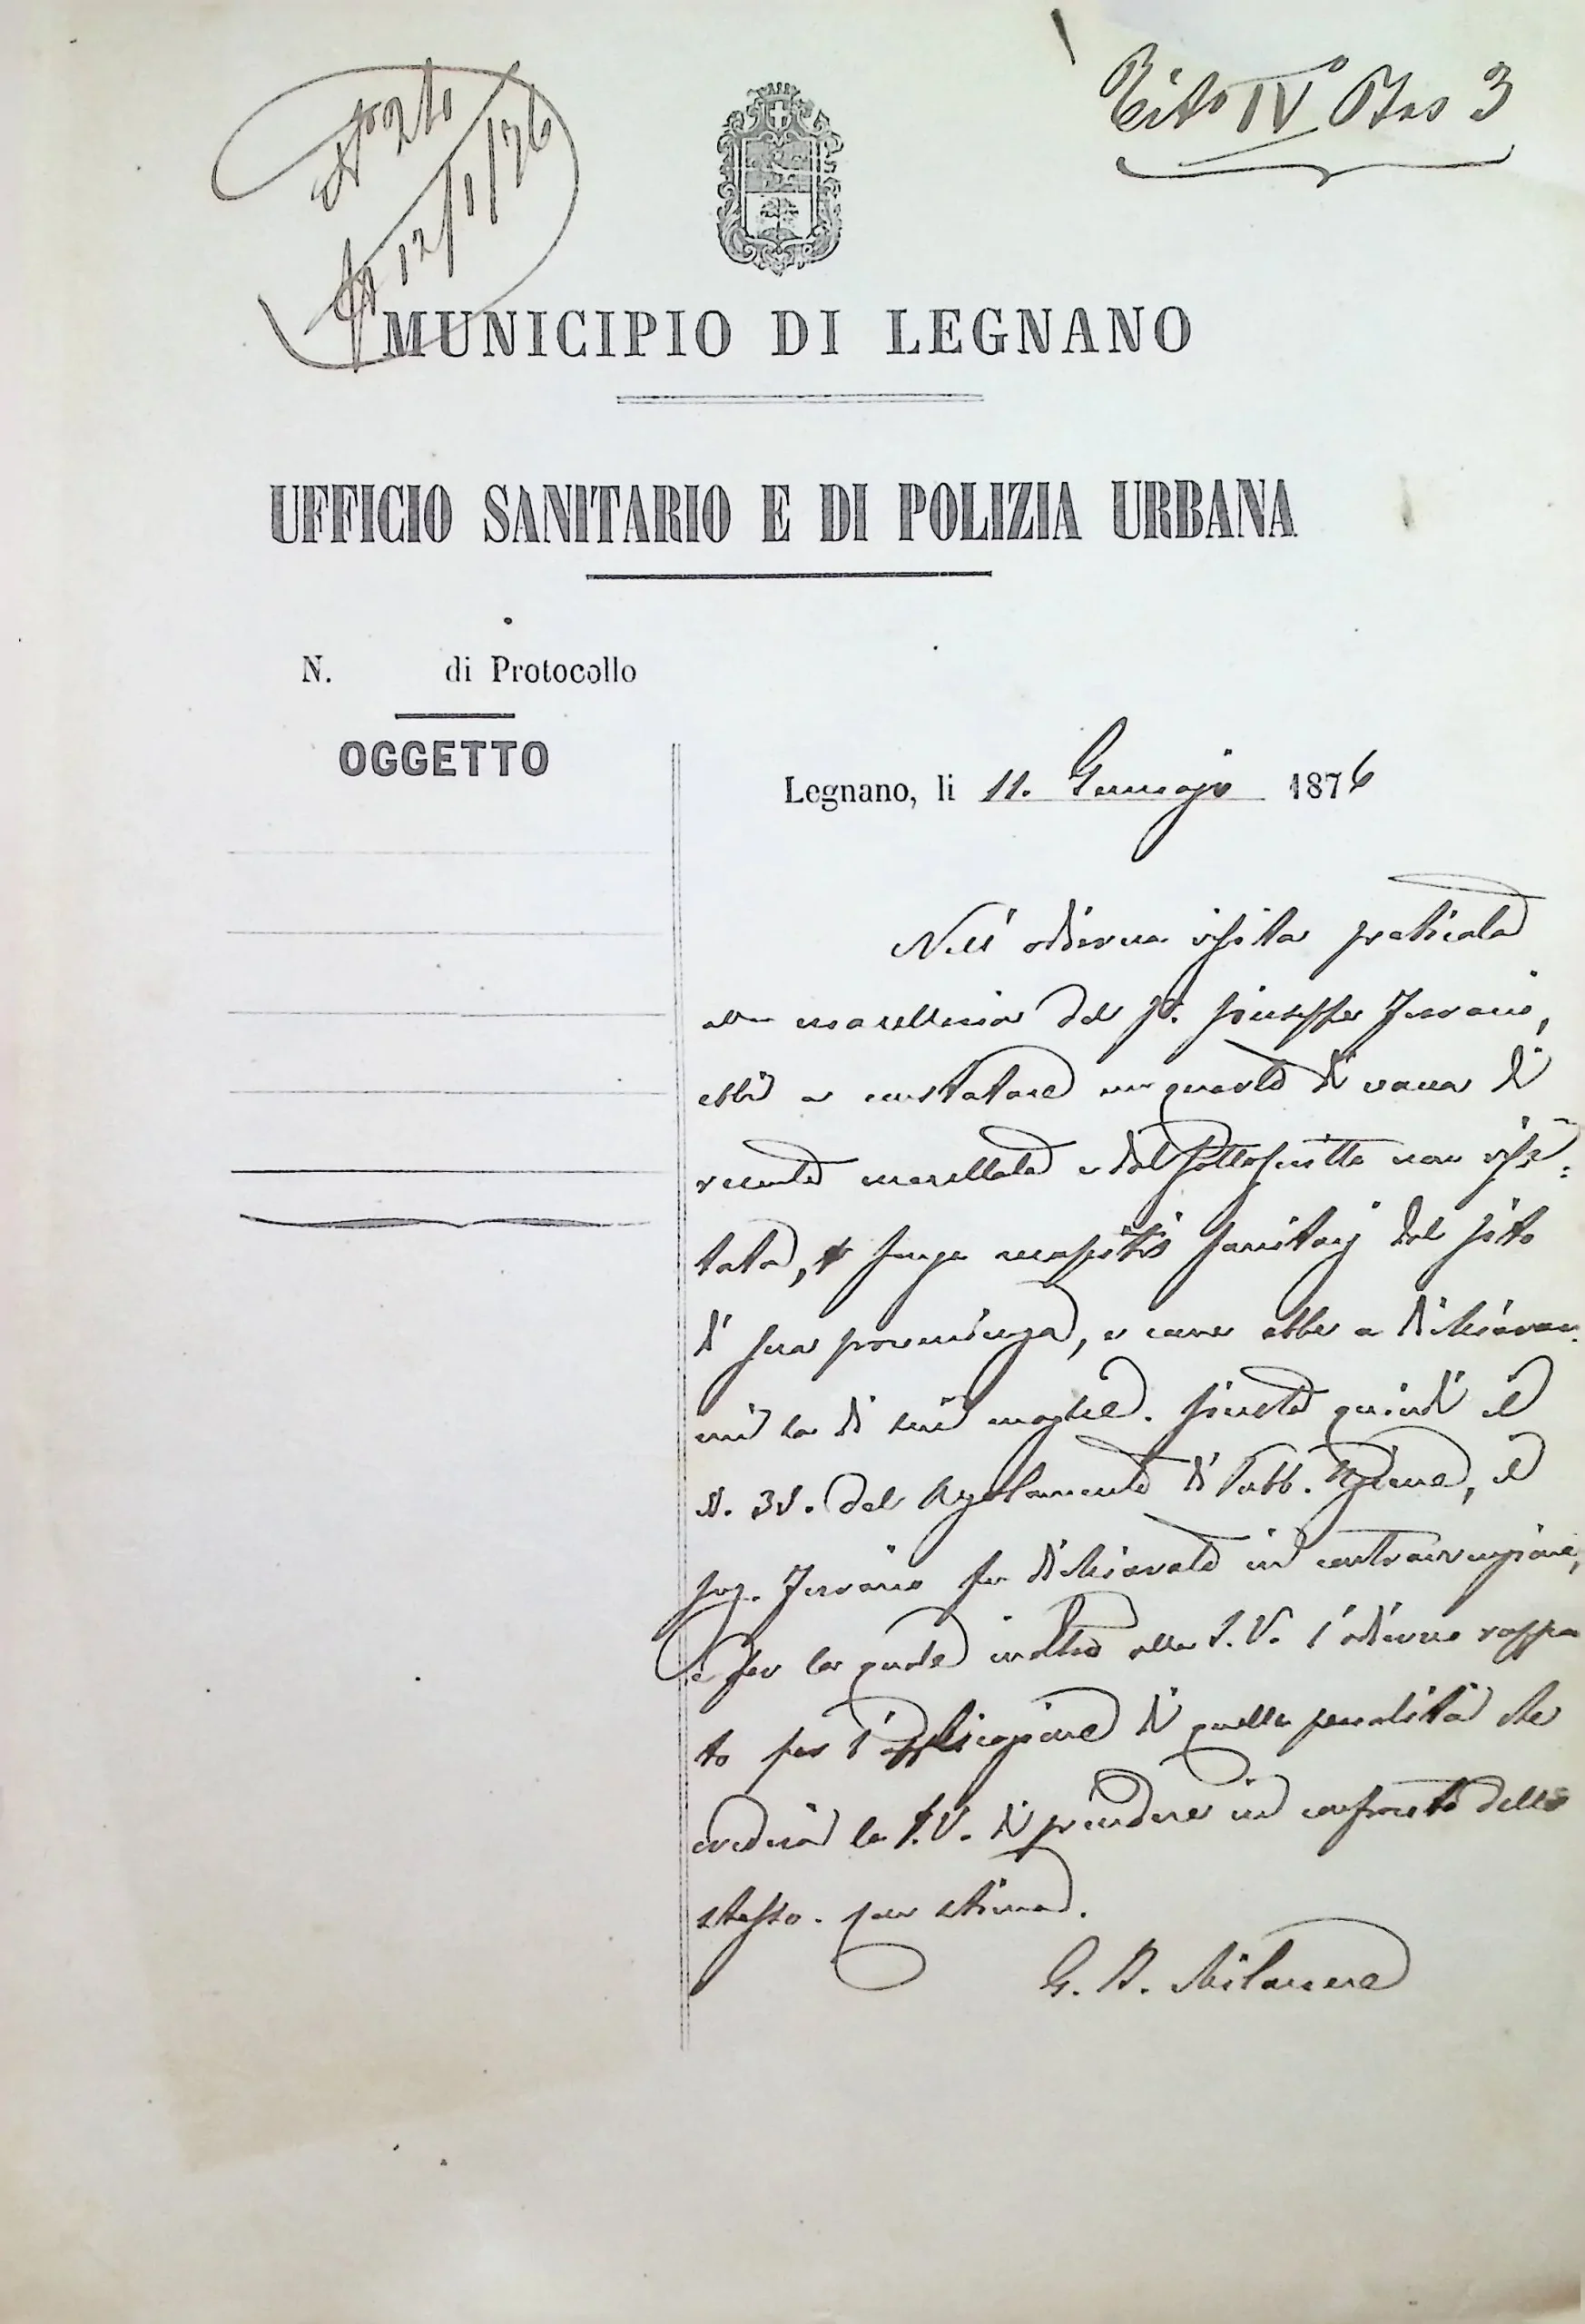 N° 24
12/1/76
Tito IV° Otto 3
MUNICIPIO DI LEGNANO
UFFICIO SANITARIO E DI POLIZIA URBANA
N. di Protocollo
OGGETTO
Legnano, li 11. Gennajo 1876
Nell' odierna visita praticata
alla macelleria del S.r Giuseppe Ferrario,
ebbi a constatare un quarto di vacca di
recente macellata e dal sottoscritto non visi:
tata, senza recapiti sanitarj del sito
di sua provenienza, e come ebbe a dichiarar
mi la di lui moglie. Giusta quindi il
N. 31. del Regolamento di Pubb. Igiene, il
Sug. Ferrario fu dichiarato in contravvenzione,
e per la quale inoltro alla S.V. l'odierno rappor
to per l'applicazione di quella penalità che
crederà la S.V. di prendere in confronto dello
stesso. Con stima.
G. B. Milanese